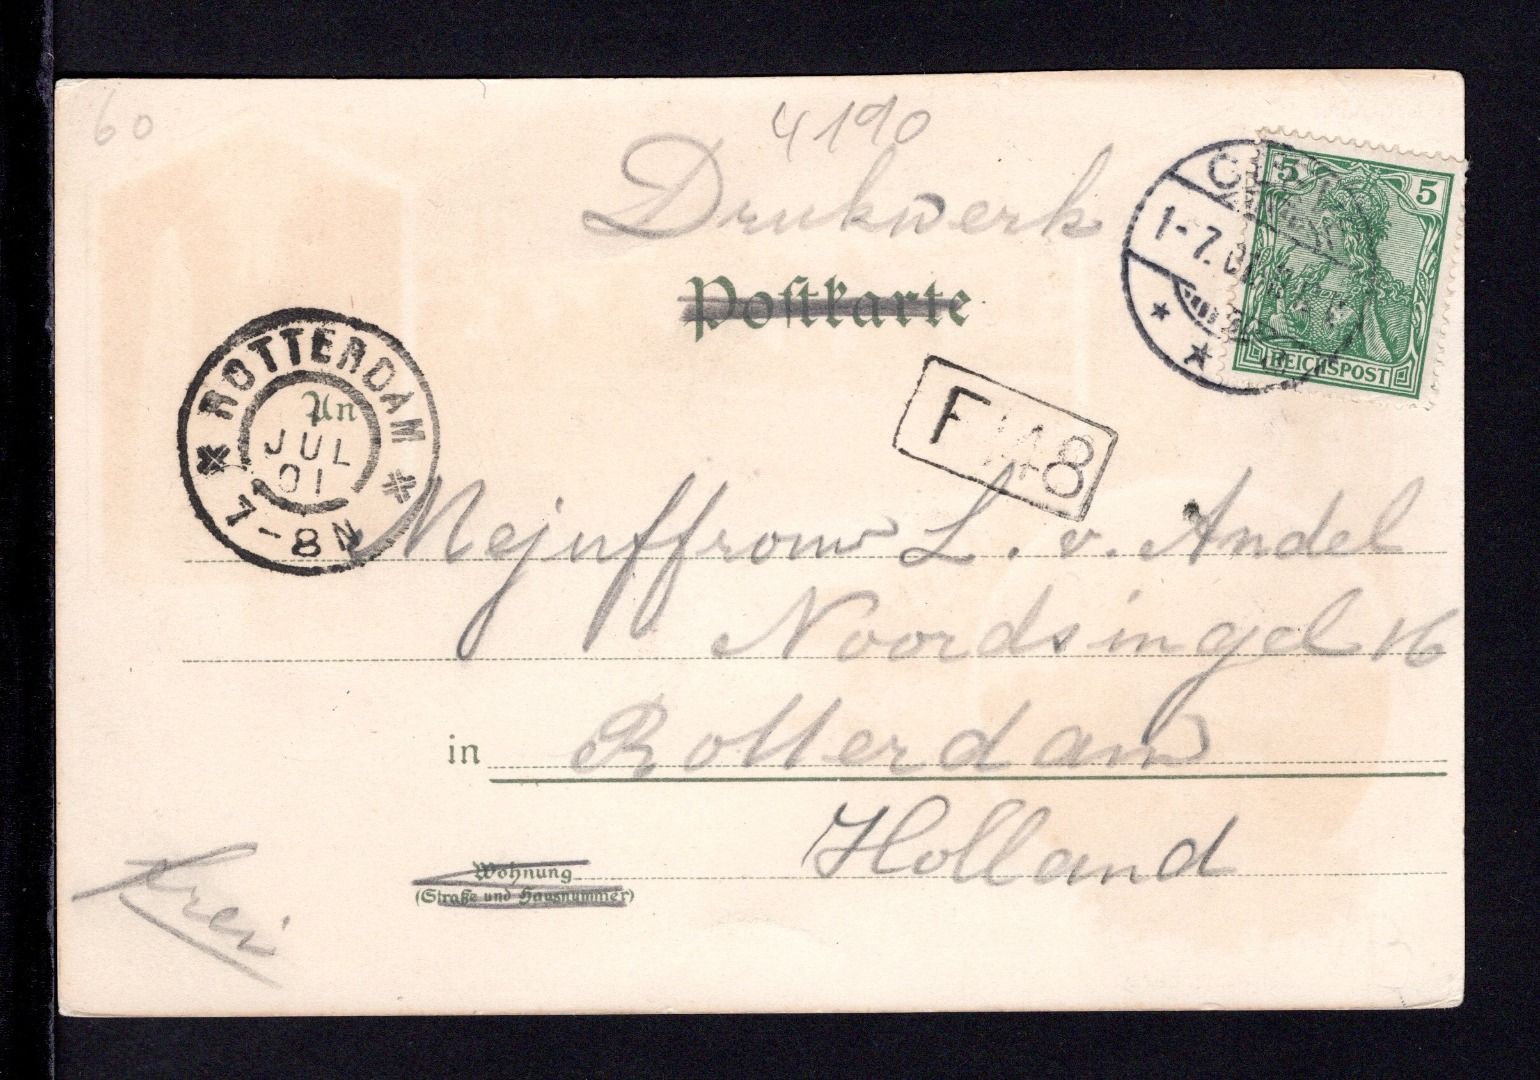 60
4190
Drukwerk
Postkarte
5 5
REICHSPOST
1-7.01
ROTTERDAM
An
JUL
01
7-8N
F 148
Mejuffrouw L. v. Andel
Noordsingel 16
in Rotterdam
Holland
Wohnung
(Straße und Hausnummer)
frei